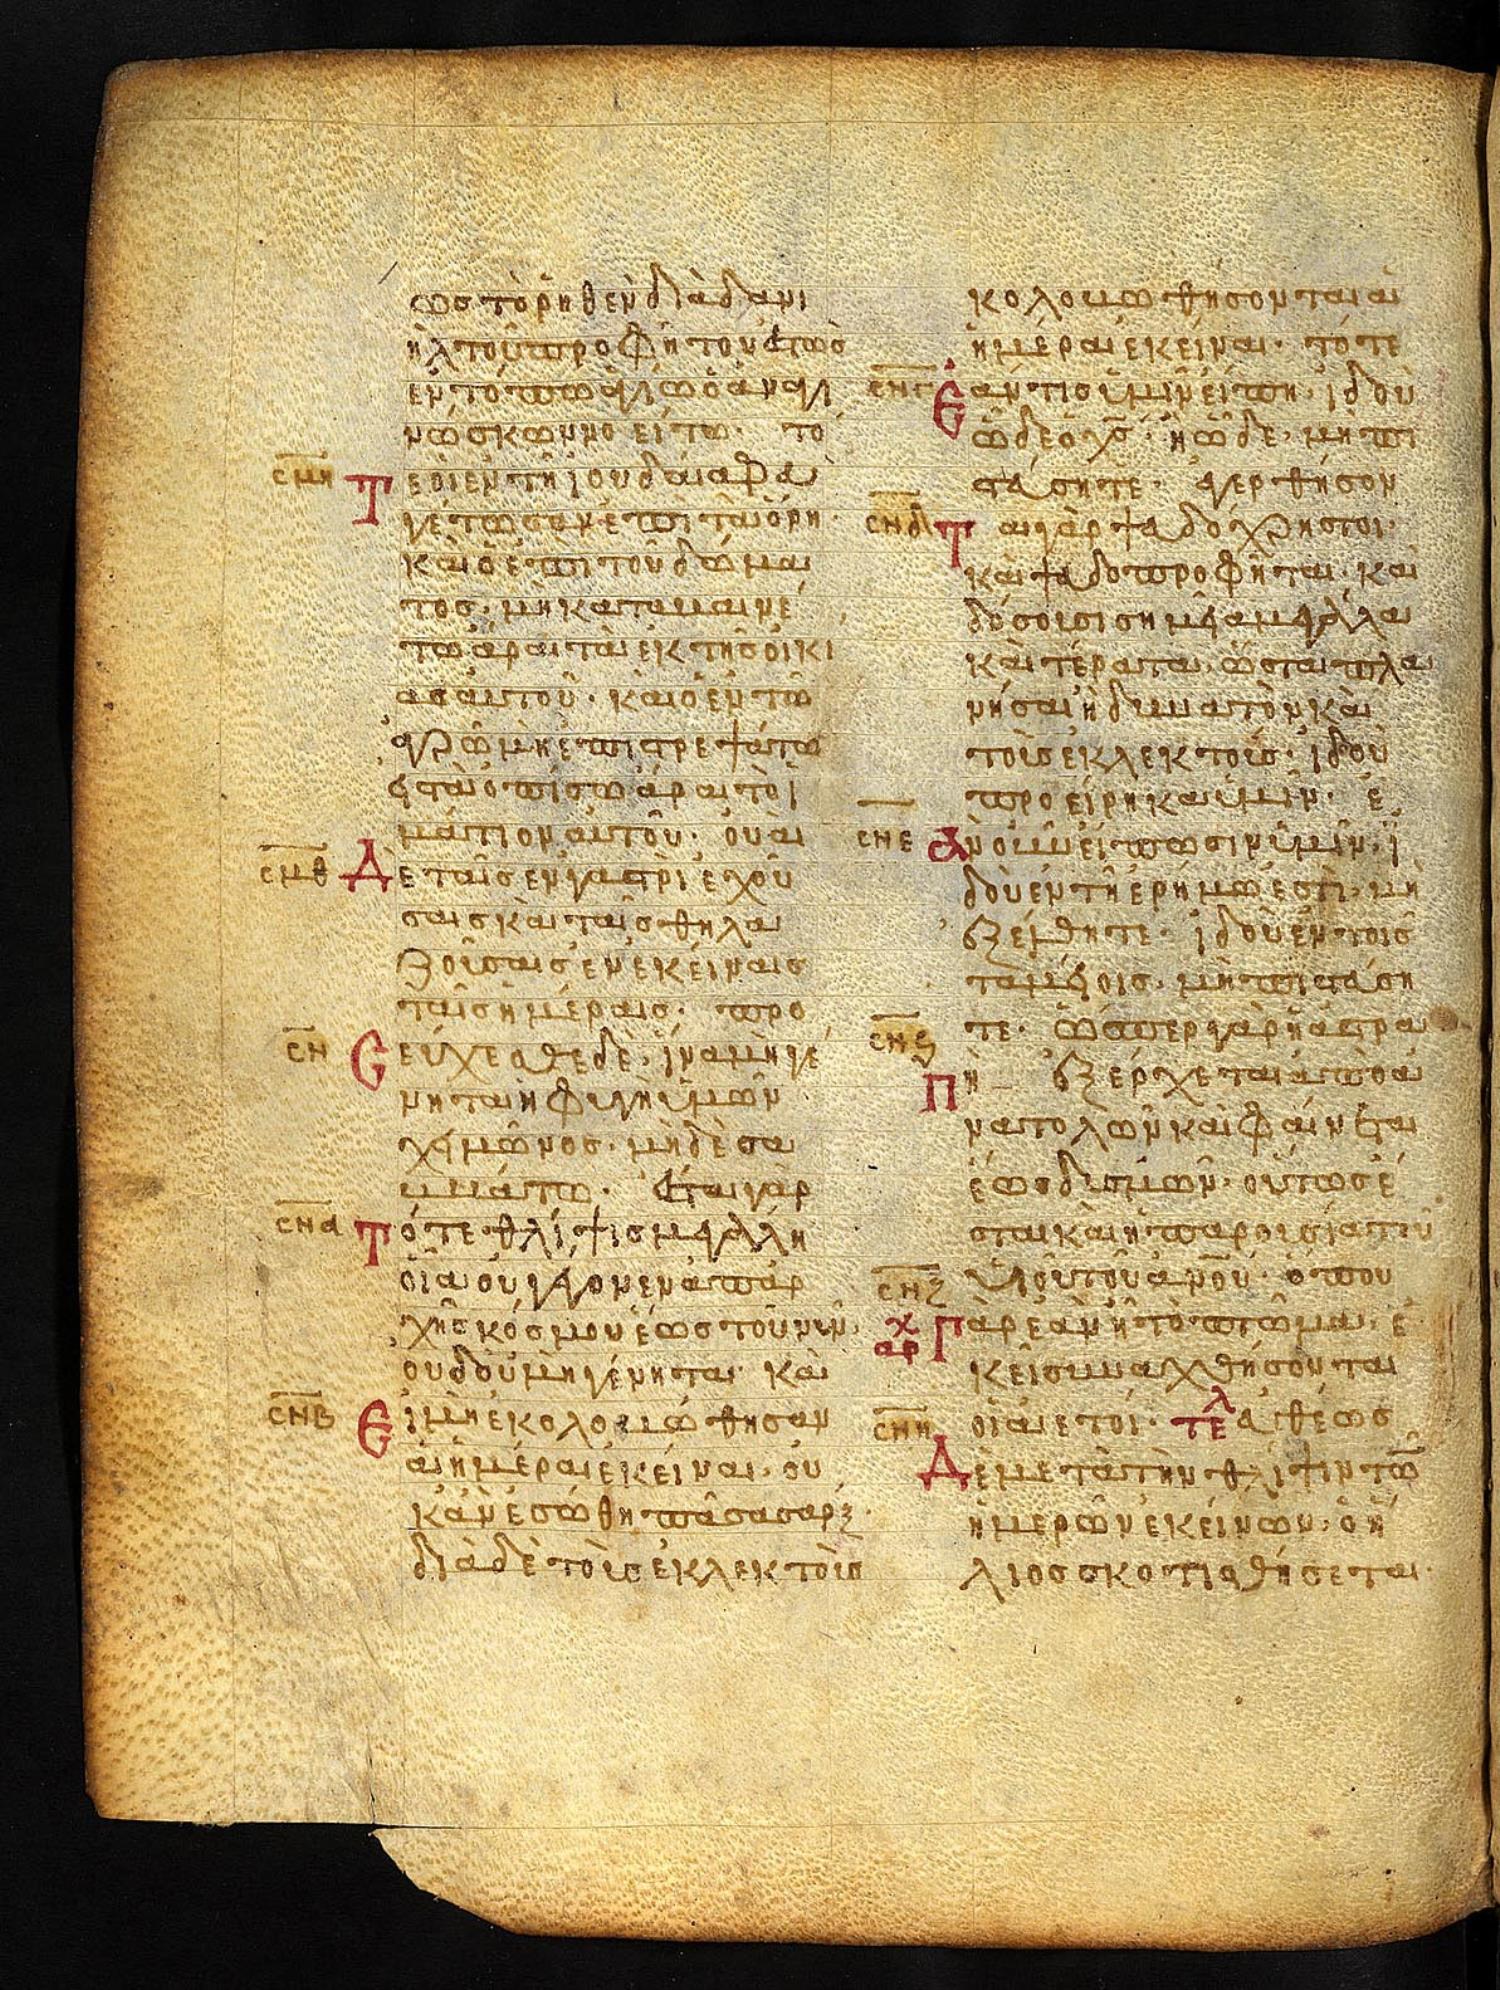 ως τὸ ρηθὲν διὰ δανι
ὴλ τοῦ προφήτου ἑστὼς
ἐν τόπω ἁγίω ὁ ἀναγι
νώσκων νοείτω· το
σμη Τ ε οι ἐν τῆ ἰουδαία φευ
γέτωσαν ἐπὶ τὰ ὄρη·
καὶ ὁ ἐπὶ τοῦ δώμα
τος· μὴ καταβαινέ
τω ἆραι τὰ ἐκ τῆς οἰκί
ας αὐτοῦ· καὶ ὁ ἐν τῶ
ἀγρῶ μὴ ἐπιστρεψάτω
εἰς τὰ ὀπίσω ἆραι τὸ ἱ
μάτιον αὐτοῦ· οὐαι
σμθ Δ ὲ ταῖς ἐν γαστρὶ ἐχού
σαις καὶ ταῖς θηλα
ζούσαις ἐν ἐκείναις
ταῖς ἡμέραις· προ
σν Ε εύχεσθε δὲ, ἵνα μὴ γέ
νηται ἡ φυγὴ ὑμῶν
χειμῶνος· μηδὲ σα
ββάτω· ἔσται γὰρ
σνα Τ ότε θλίψις μεγάλη
οἵα οὐ γέγονεν ἀπ' ἀρ
χῆς κόσμου ἕως τοῦ νῦν,
οὐδ' οὐ μὴ γένηται· καὶ
σνβ Ε ἰ μὴ ἐκολοβώθησαν
αἱ ἡμέραι ἐκείναι, οὐ
κ ἂν ἐσώθη πᾶσα σάρξ·
διὰ δὲ τοὺς ἐκλεκτοὺς
κολοβωθήσονται αἱ
ἡμέραι ἐκείναι· τότε
σνγ Ε ἄν τις ὑμῖν είπη· ἰδοὺ
ὧδε ὁ χς· ἢ ὧδε· μὴ πι
στεύσητε· ἐγερθήσον
σνδ Τ αι γὰρ ψευδόχρηστοι·
καὶ ψευδοπροφῆται· καὶ
δώσουσι σημεῖα μεγάλα
καὶ τέρατα· ὥστε πλα
νῆσαι εἰ δυνατὸν καὶ
τοὺς ἐκλεκτοὺς· ἰδοὺ
προείρηκα ὑμῖν· ἐ
σνε Α ὰν οὖν εἴπωσιν ὑμῖν, ἰ
δοὺ ἐν τῆ ἐρήμω ἐστὶ, μὴ
ἐξέλθητε· ἰδοὺ ἐν τοῖς
ταμείοις· μὴ πιστεύση
τε· ὥσπερ γὰρ ἡ ἀστρα
σνς Π ὴ ἐξέρχεται ἀπὸ ἀ
νατολῶν καὶ φαίνεται
ἕως δυσμῶν· ούτως ἔ
σται καὶ ἡ παρουσία τοῦ
υἱοῦ τοῦ ανου· ὅπου
σνζ αρχ Γ ὰρ ἐὰν ἦ τὸ πτῶμα, ἐ
κεῖ συναχθήσονται
σνη οἱ ἀετοί· τελ εὐθέως
Δ ὲ μετὰ τὴν θλίψιν τῶν
ἡμερῶν ἐκείνων, ὁ ἥ
λιος σκοτισθήσεται·